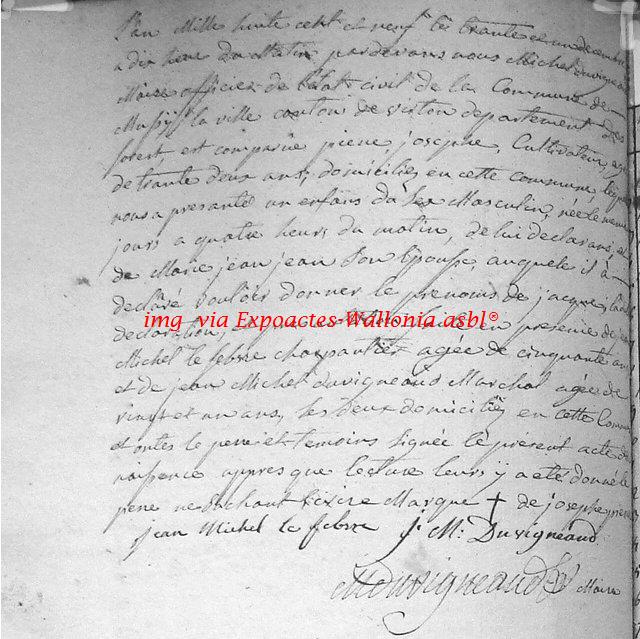 L'an Mille huite cent et neuf le trante et un decembre
a dix heur du Matin pardevans nous Michel duvigneaud
Maire officier de l'Etat civil de la Commune de
Mussy la ville canton de virton departement des
forest, est comparue piere josephe, Cultivateur, agé
de trante deux ans, domiciliez en cette commune lequel
nous a presanté un enfans du sex Masculin, née le meme
jours a quatre heurs du matin, de lui declarant et
de Marie jean jean Son Epouse, auquele il a
declaré vouloir donner le prenoms de jacque,
declaration, en presence de
img via Expoactes-Wallonia asbl®
Michel le febre charpantier agée de cinquante ans
et de jean Michel duvigneaud Marchal agée de
vinst et un ans, les deux domiciliéz en cette Commune
et ontes le pere et temoins signée le present acte de
naissence appres que lecture leurs y a eté donnée le
pere ne sachant Ecrire Marque + de josephe piere
jean Michel le febre J. M. Duvigneaud
Mduvigneaud Maire